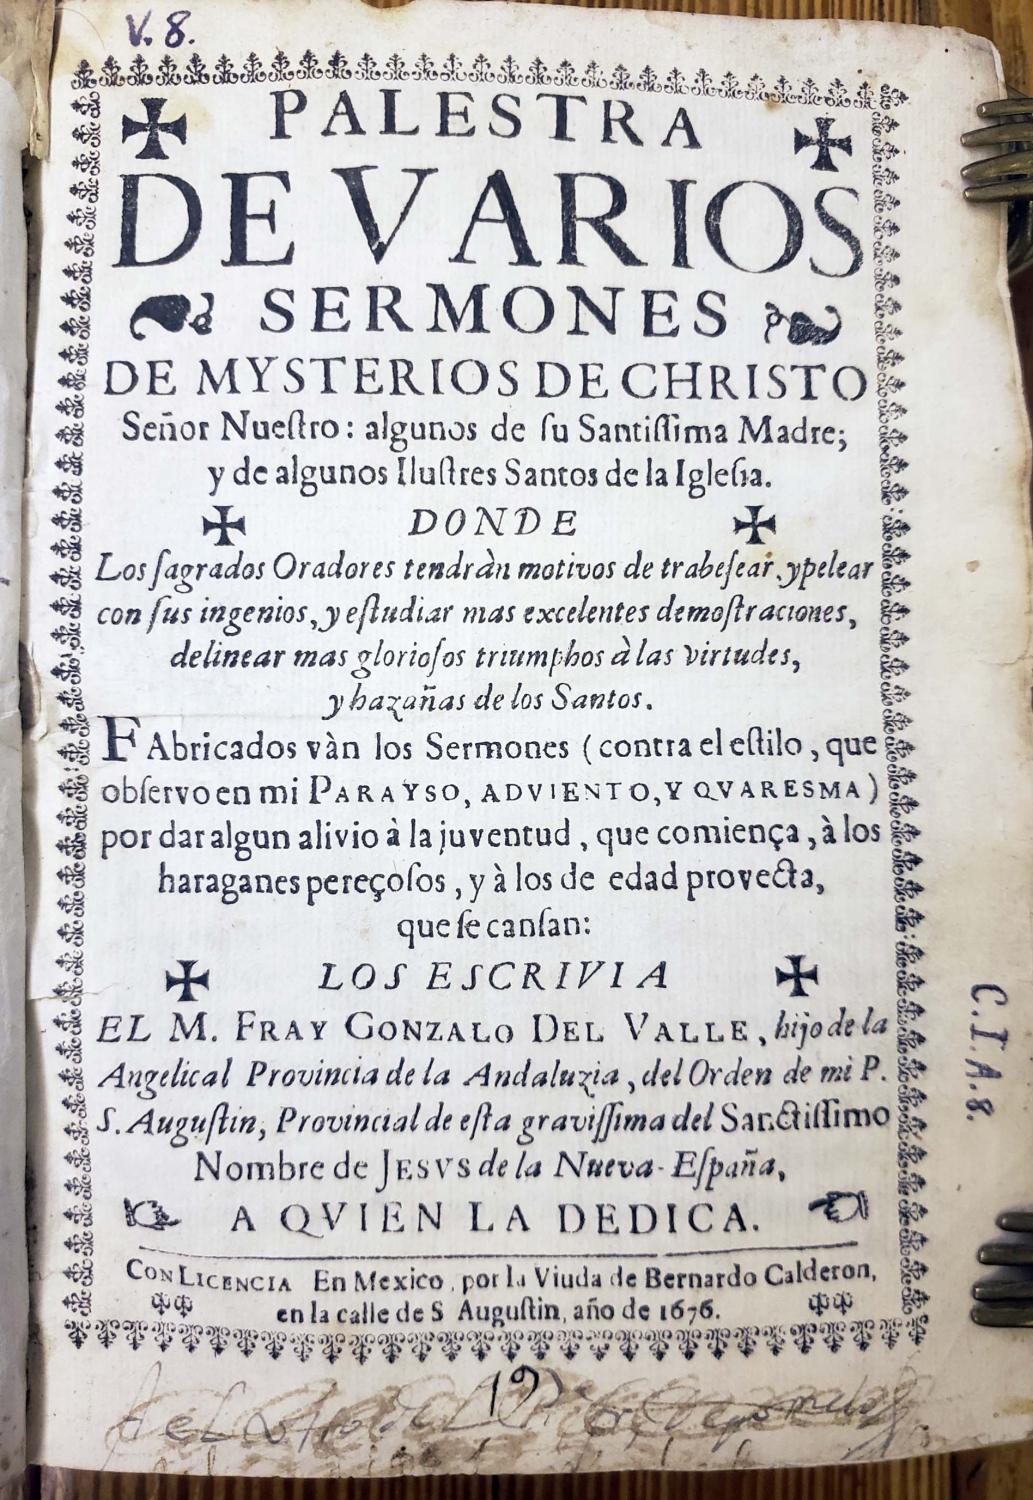 V. 8.
PALESTRA
DE VARIOS
SERMONES
DE MYSTERIOS DE CHRISTO
Señor Nueſtro: algunos de ſu Santiſſima Madre;
y de algunos Iluſtres Santos de la Igleſia.
DONDE
Los ſagrados Oradores tendràn motivos de trabeſear. y pelear
con ſus ingenios, y eſtudiar mas excelentes demoſtraciones,
delinear mas glorioſos triumphos à las virtudes,
y hazañas de los Santos.
FAbricados vàn los Sermones (contra el eſtilo, que
obſervo en mi PARAYSO, ADVIENTO, Y QVARESMA)
por dar algun alivio à la juventud, que comiença, à los
haraganes pereçoſos, y à los de edad provecta,
que ſe canſan:
LOS ESCRIVIA
EL M. FRAY GONZALO DEL VALLE, hijo de la
Angelical Provincia de la Andaluzia, del Orden de mi P.
S. Auguſtin, Provincial de eſta graviſſima del Sanctiſſimo
Nombre de JESVS de la Nueva-Eſpaña,
A QVIEN LA DEDICA.
CON LICENCIA En Mexico, por la Viuda de Bernardo Calderon,
en la calle de S Auguſtin, año de 1676.
C.I.A.8.